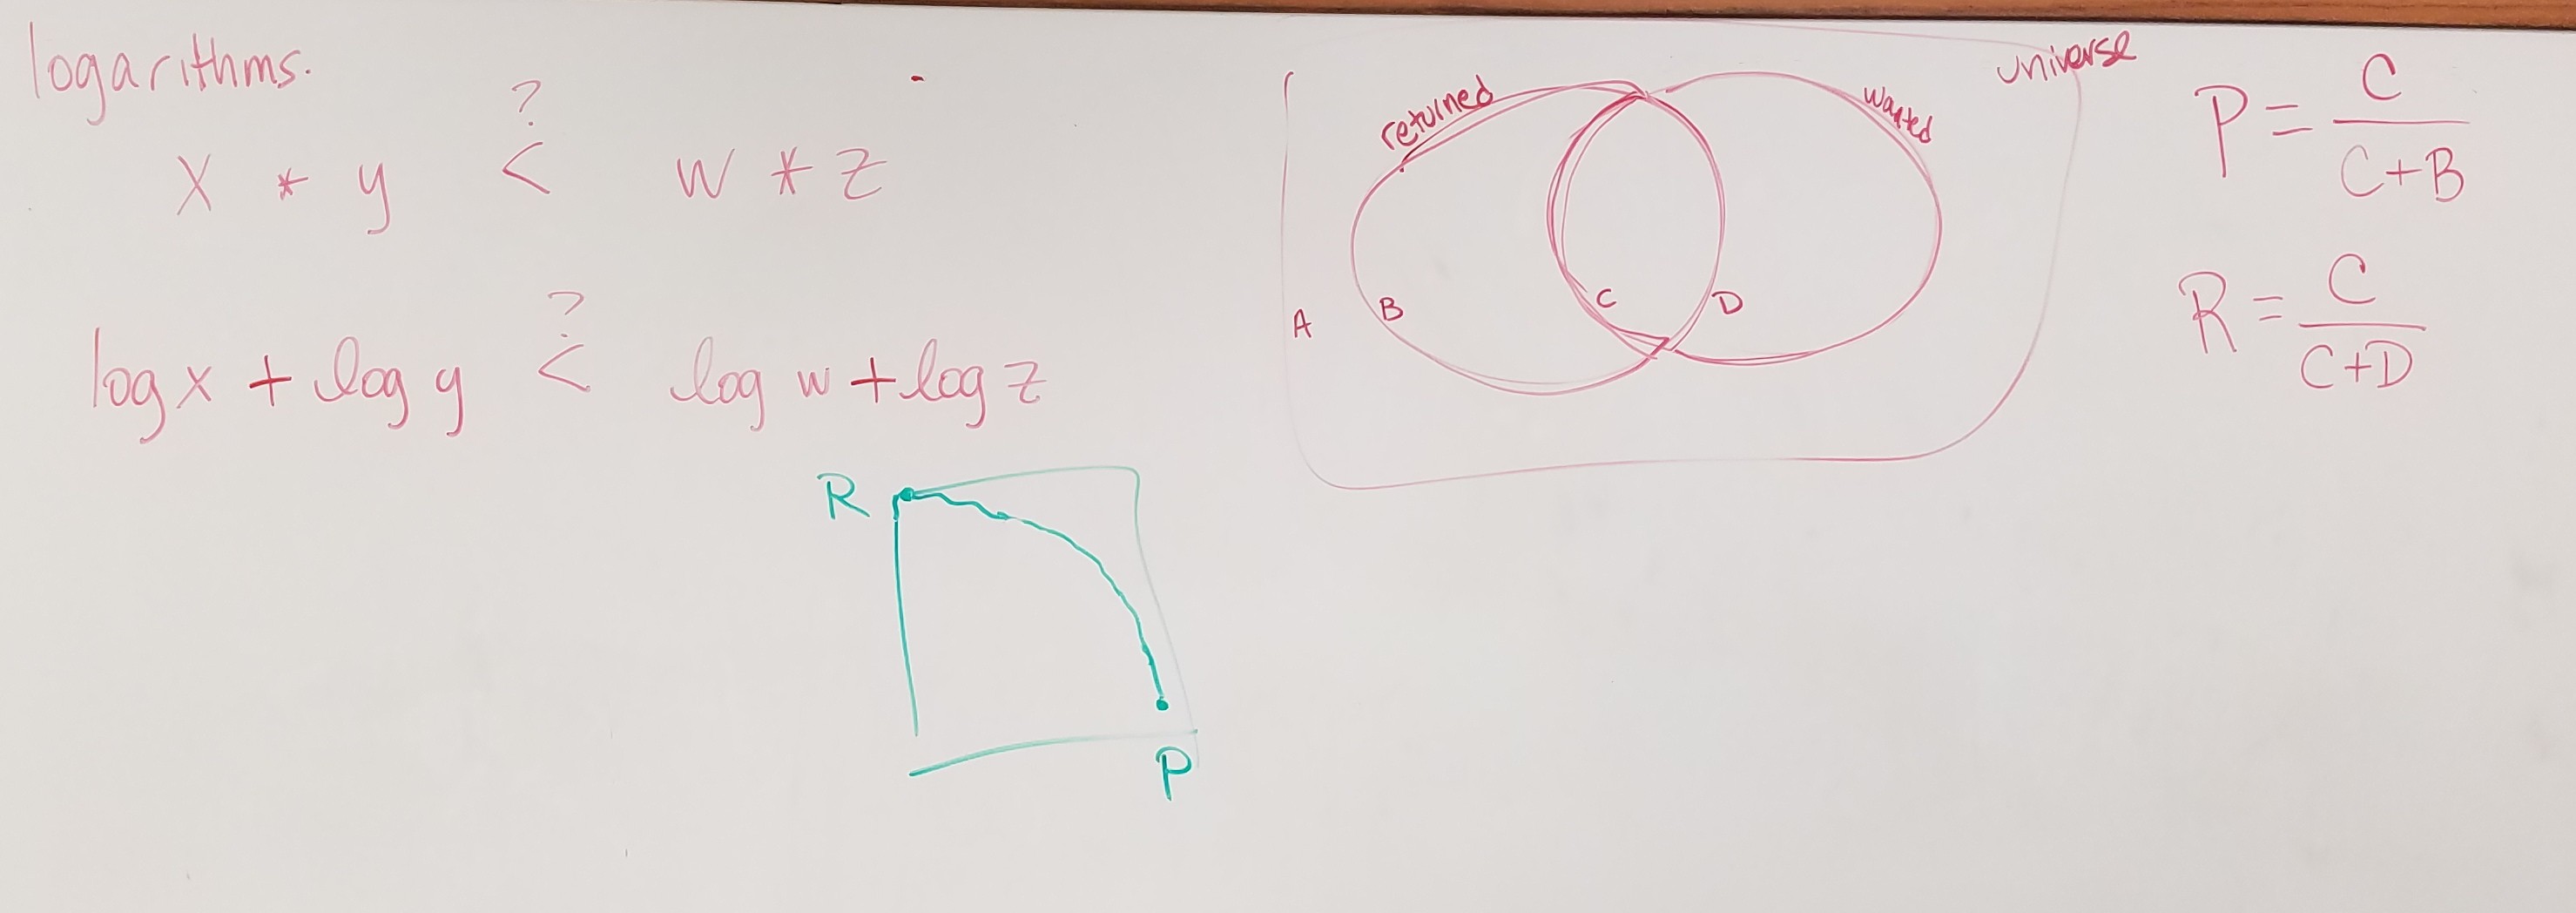 logarithms.
?
x * y < w * z
?
log x + log y < log w + log z
universe
returned
wanted
A B C D
P = C / C+B
R = C / C+D
R
P